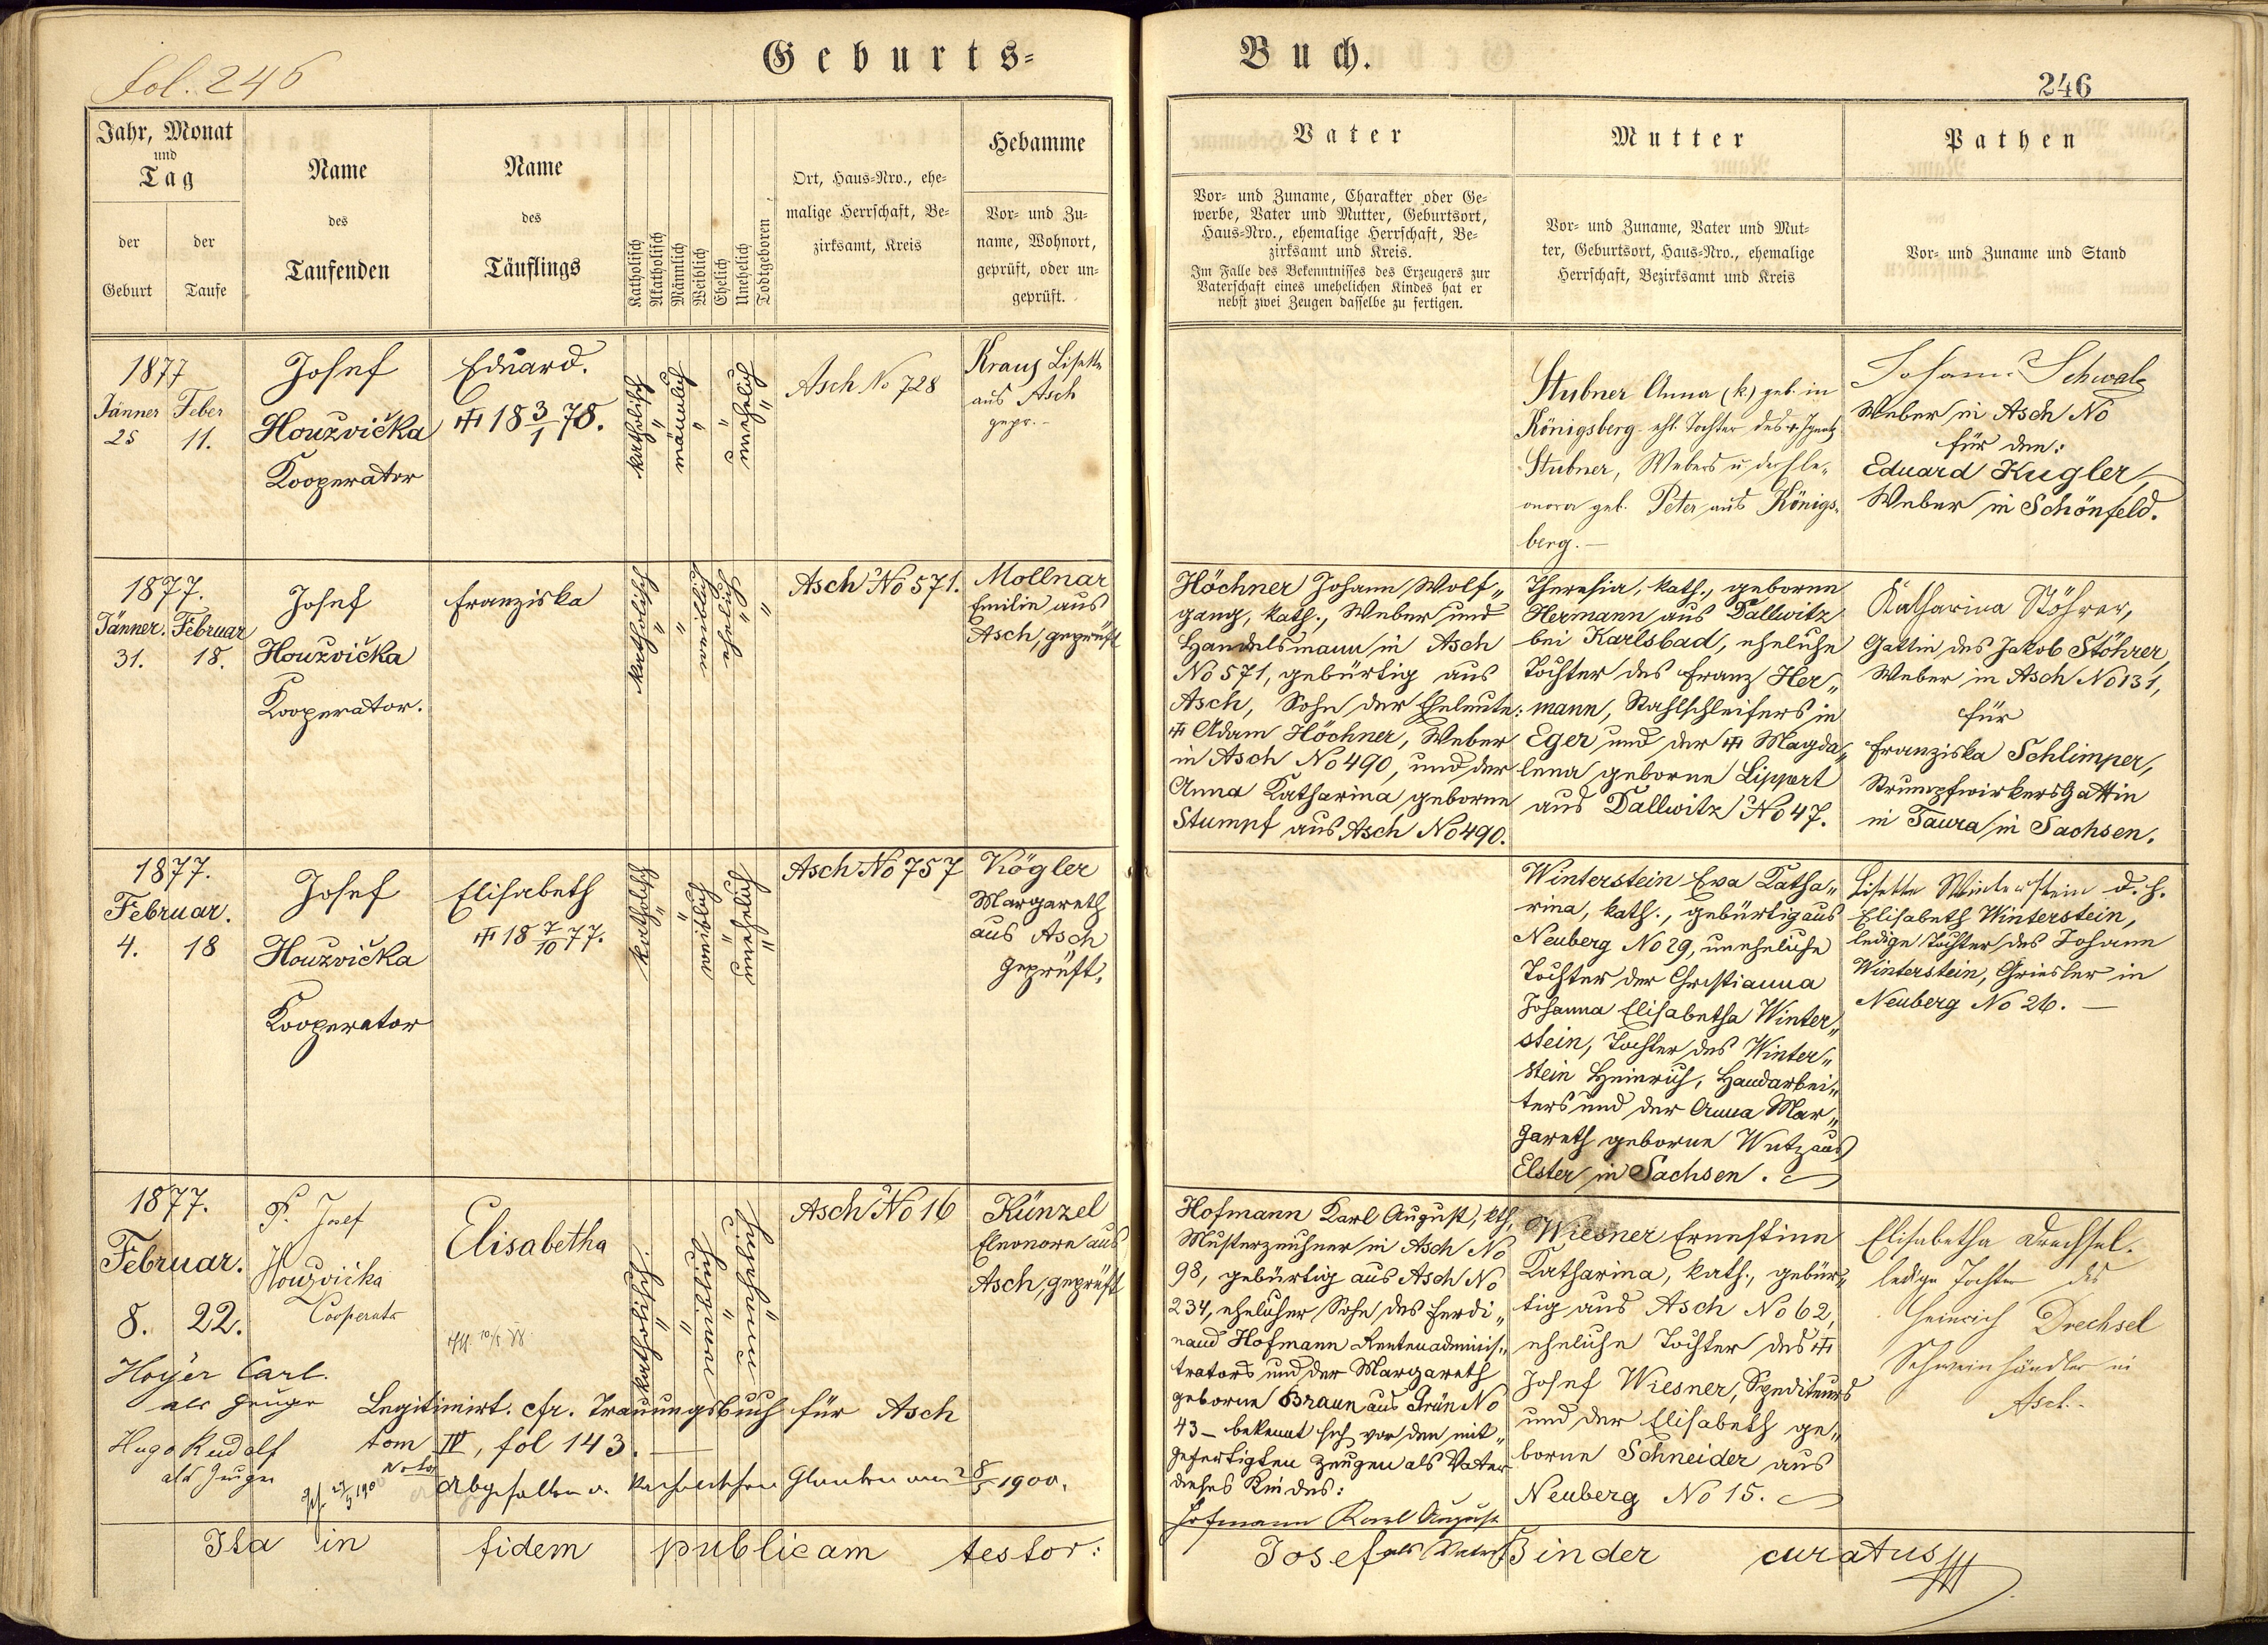 fol. 246
Geburts=
Buch.
246
Jahr, Monat
und
Tag
der
Geburt
der
Taufe
Name
des
Taufenden
Name
des
Täuflings
Katholisch
Akatholisch
Männlich
Weiblich
Ehelich
Unehelich
Todtgeboren
Ort, Haus=Nro., ehe=
malige Herrschaft, Be=
zirksamt, Kreis
Hebamme
Vor= und Zu=
name, Wohnort,
geprüft, oder un=
geprüft.
Vater
Vor= und Zuname, Charakter oder Ge=
werbe, Vater und Mutter, Geburtsort,
Haus=Nro., ehemalige Herrschaft, Be=
zirksamt und Kreis.
Im Falle des Bekenntnisses des Erzeugers zur
Vaterschaft eines unehelichen Kindes hat er
nebst zwei Zeugen dasselbe zu fertigen.
Mutter
Vor= und Zuname, Vater und Mut=
ter, Geburtsort, Haus=Nro., ehemalige
Herrschaft, Bezirksamt und Kreis
Pathen
Vor= und Zuname und Stand
1877
Jänner
25
Feber
11.
Josef
Houzvička
Kooperator
Eduard.
18 3/1 78.
katholisch
männlich
unehelich
Asch No 728
Kraus Lisette
aus Asch
gepr.
Stubner Anna (k.) geb. in
Königsberg ehl. Tochter des Ignatz
Stubner, Webers u. der Ele„
onora geb. Peter aus Königs„
berg. —
Johann Schwalz
Weber in Asch No
für den:
Eduard Kugler,
Weber in Schönfeld.
1877.
Jänner.
31.
Februar
18.
Josef
Houzvička
Kooperator.
Franziska
katholisch
weiblich
ehelich
Asch No 571.
Mollnar
Emilie aus
Asch, geprüft
Höchner Johann Wolf„
gang, kath., Weber und
Handelsmann in Asch
No 571, gebürtig aus
Asch, Sohn der Eheleute:
Adam Höchner, Weber
in Asch No 490, und der
Anna Katharina geborne
Stumpf aus Asch No 490.
Theresia, kath., geborne
Hermann aus Dallwitz
bei Karlsbad, eheliche
Tochter des Franz Her„
mann, Stahlschleifers in
Eger und der Magda„
lena geborne Lippert
aus Dallwitz No 47.
Katharina Stöhrer,
Gattin des Jakob Stöhrer,
Weber in Asch No 131,
für
Franziska Schlimper,
Strumpfwirkers Gattin
in Taura in Sachsen.
1877.
Februar.
4.
18
Josef
Houzvička
Kooperator
Elisabeth
18 7/10 77.
katholisch
weiblich
unehelich
Asch No 757
Kögler
Margareth
aus Asch
geprüft.
Winterstein Eva Katha„
rina, kath., gebürtig aus
Neuberg No 29, uneheliche
Tochter der Christianna
Johanna Elisabetha Winter„
stein, Tochter des Winter„
stein Heinrich, Handarbei„
ters und der Anna Mar„
gareth geborne Wutz aus
Elster in Sachsen.
Lisette Winterstein d. h.
Elisabeth Winterstein,
ledige Tochter des Johann
Winterstein, Griesler in
Neuberg No 26. —
1877.
Februar.
8.
22.
P. Josef
Houzvička
Cooperator
Elisabetha
katholisch
weiblich
unehelich
Asch No 16
Künzel
Eleonore aus
Asch, geprüft
Hofmann Karl August, kth,
Musterzeichner in Asch No
98, gebürtig aus Asch No
234, ehelicher Sohn des Ferdi„
nand Hofmann Rentenadminis„
trators und der Margareth
geborne Braun aus Grün No
43 – bekennt sich vor den mit„
gefertigten Zeugen als Vater
dieses Kindes:
Hofmann Karl August
als Vater
Wiesner Ernestine
Katharina, kath., gebür„
tig aus Asch No 62,
eheliche Tochter des
Josef Wiesner, Spediteurs
und der Elisabeth ge„
borne Schneider aus
Neuberg No 15.
Elisabetha Drechsel.
ledige Tochter des
Heinrich Drechsel
Schweinhändler in
Asch.
Hoyer Carl.
als Zeuge
Hugo Rudolf
als Zeuge
Legitimirt. cfr. Trauungsbuch für Asch
tom IV, fol 143. —
Abgefallen v. katholischen Glauben am 28/5 1900.
Ita in fidem publicam testor:
Josef Binder curatus